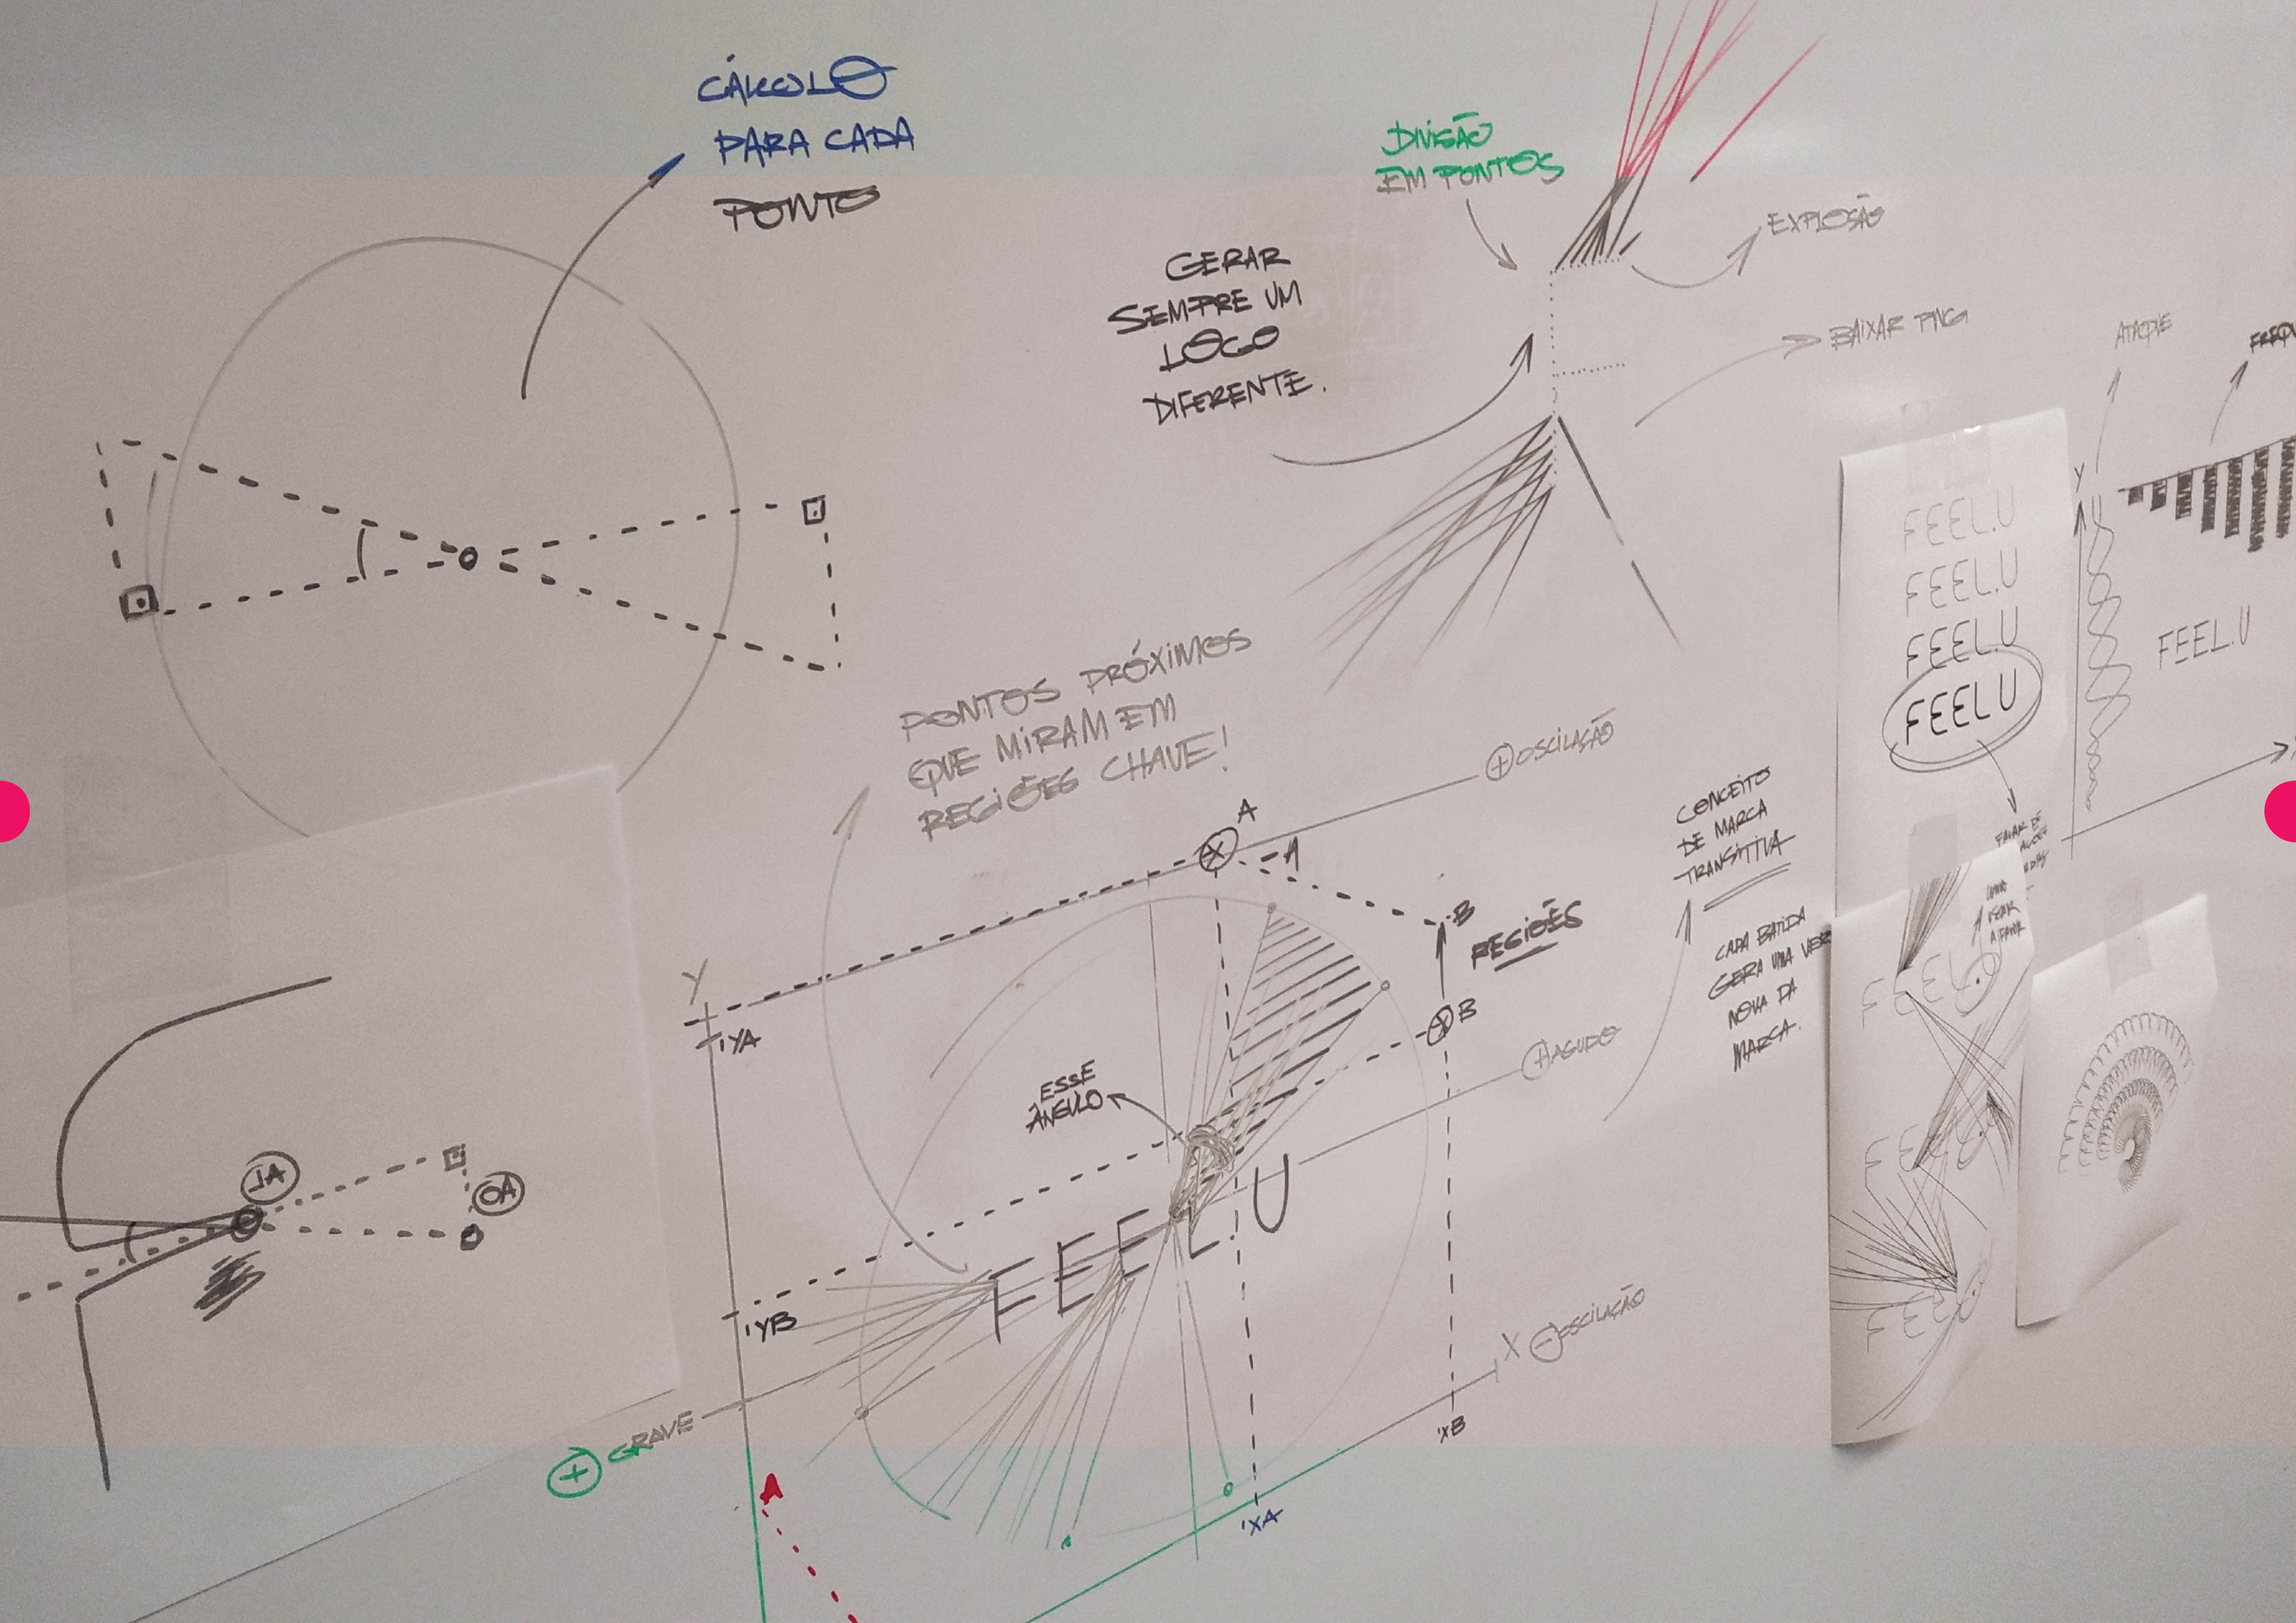 CÁLCULO
PARA CADA
PONTO
DIVISÃO
EM PONTOS
EXPLOSÃO
GERAR
SEMPRE UM
LOGO
DIFERENTE.
BAIXAR PNG
ATAQUE
FREQU
Y
FEEL.U
FEEL.U
FEEL.U
FEEL.U
FEEL.U
FALAR DE
PONTOS PRÓXIMOS
QUE MIRAM EM
REGIÕES CHAVE!
+ OSCILAÇÃO
CONCEITO
DE MARCA
TRANSITIVA
CADA BATIDA
GERA UMA VER
NOVA DA
MARCA.
A
-A
-B
REGIÕES
B
Y
'YA
+ AGUDO
ESSE
ÂNGULO
FEEL.U
'YB
X - OSCILAÇÃO
'XB
'XA
+ GRAVE
A
JA
OA
FEEL
FEEL
FEEL